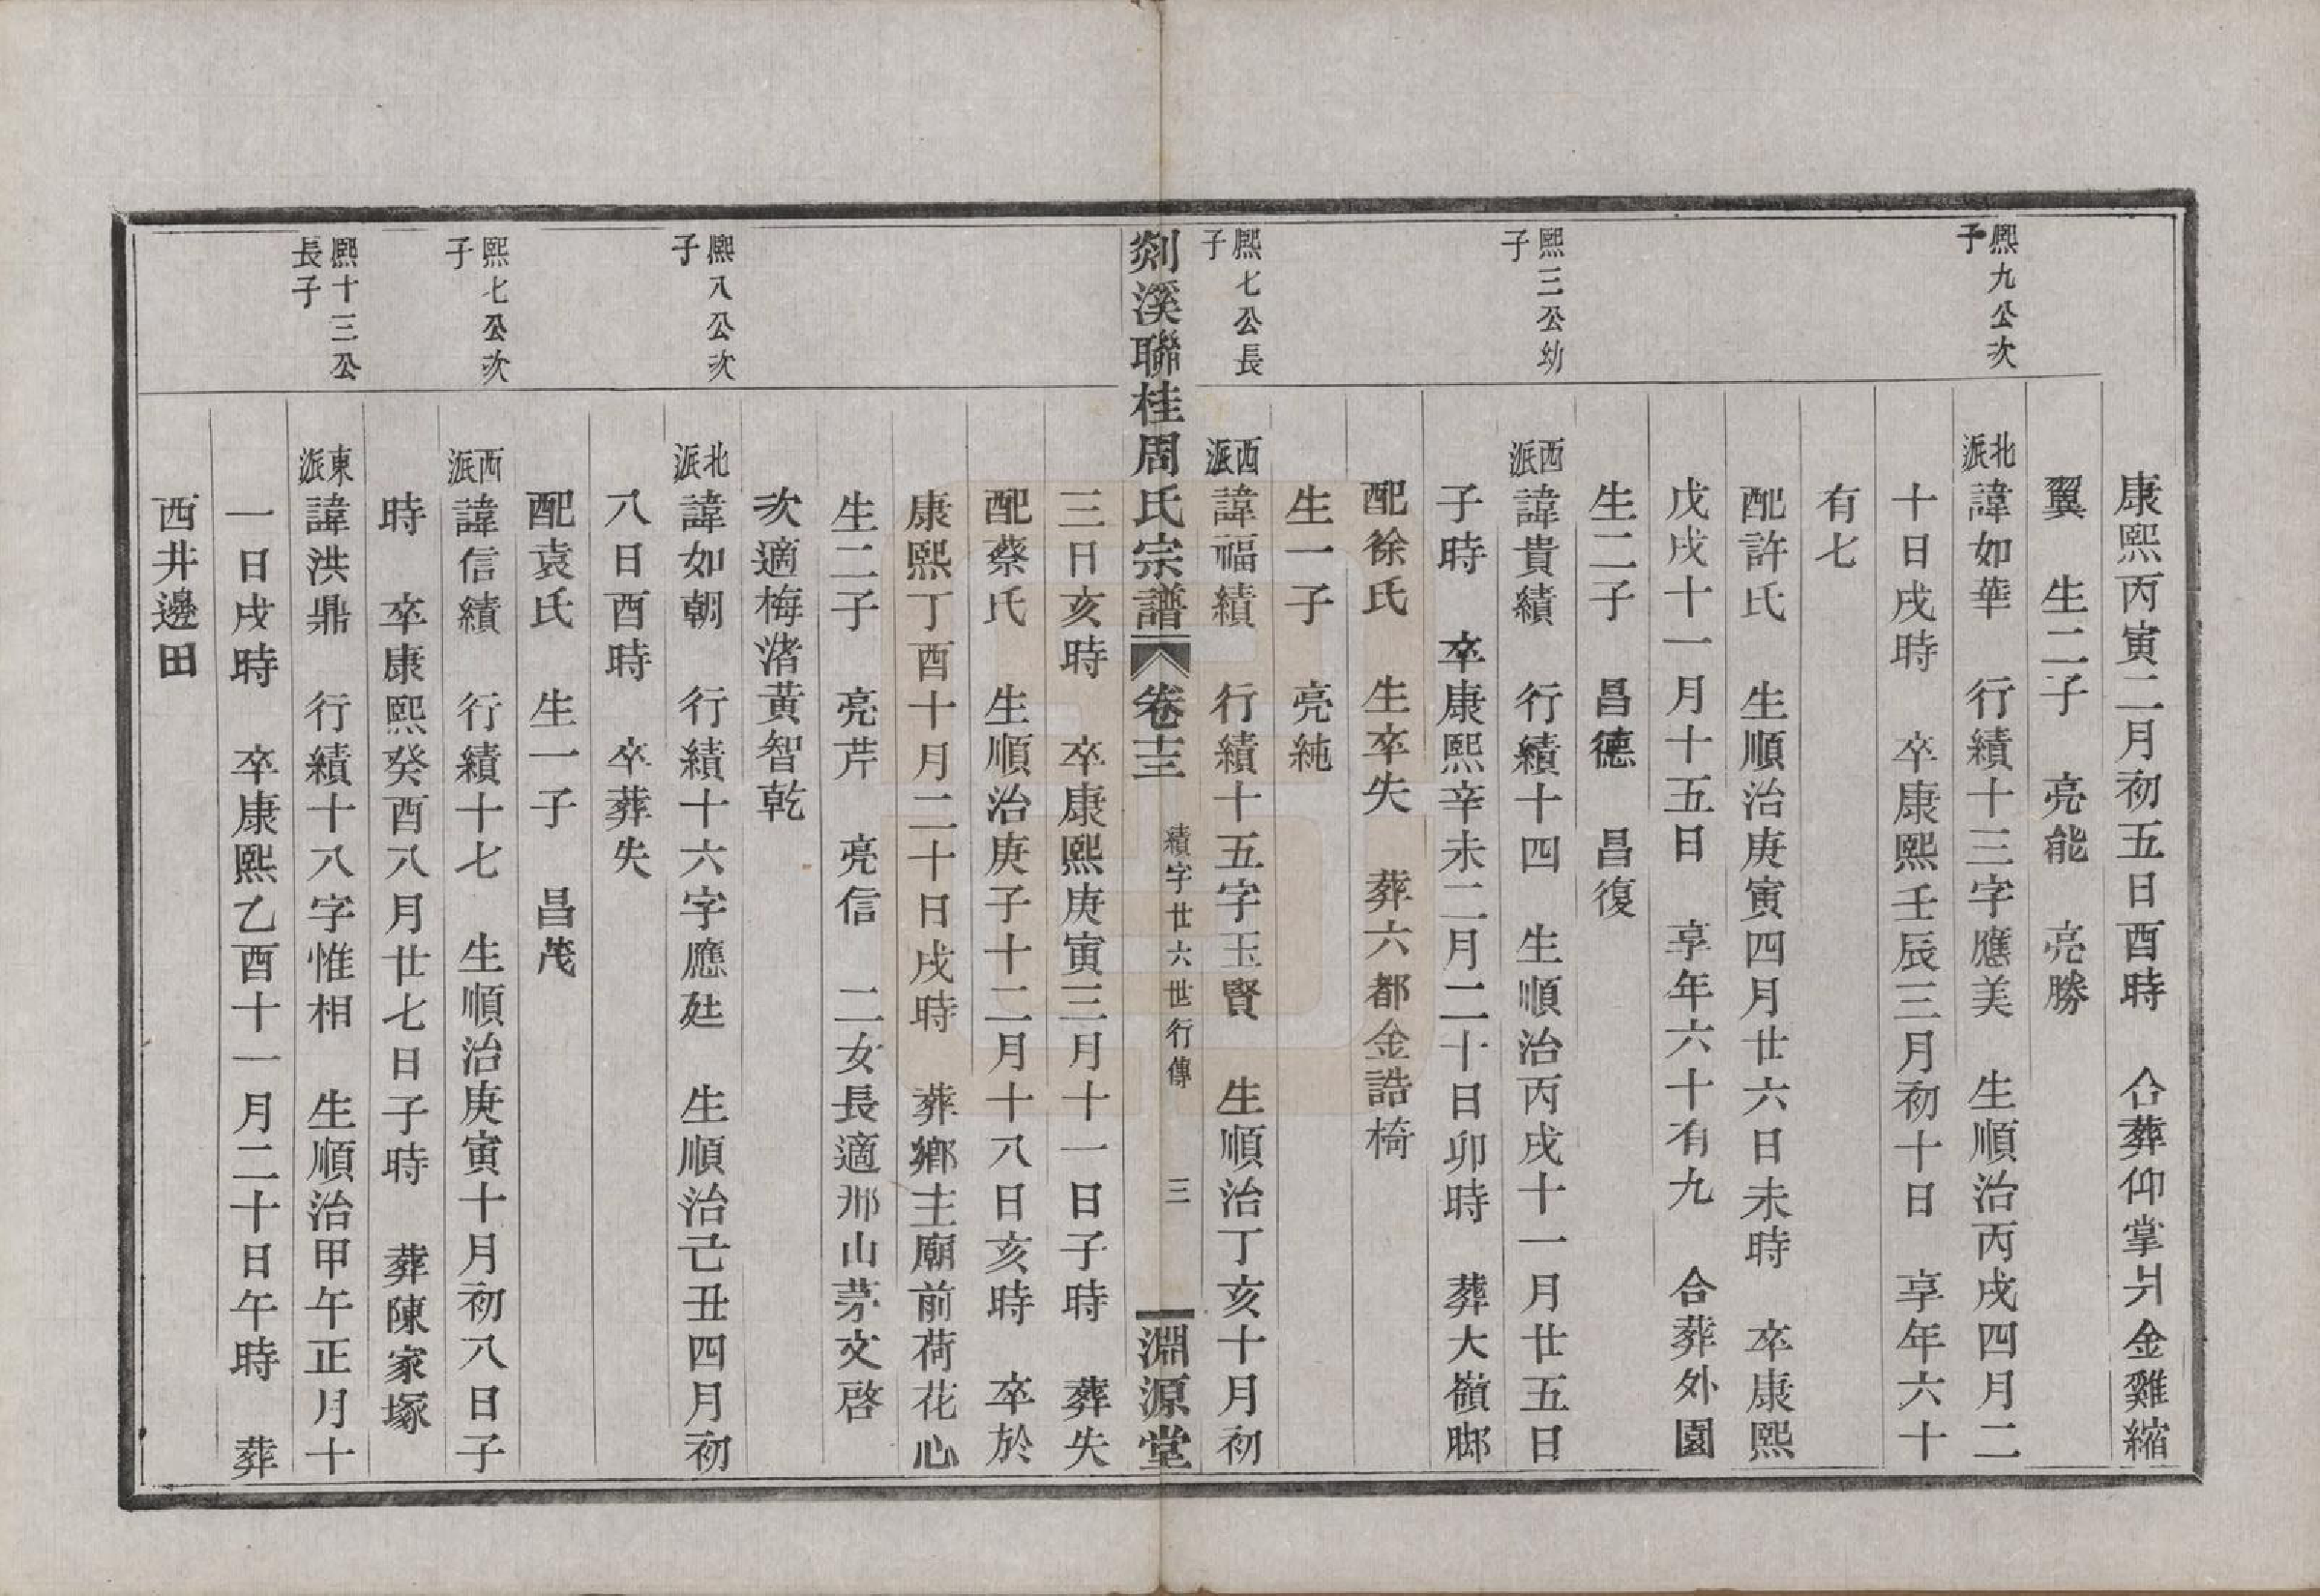 康熙丙寅二月初五日酉時　合葬仰掌爿金雞縮
翼　生二子　亮能　亮勝
熙九公次
子
北派諱如華　行績十三字應美　生順治丙戌四月二
十日戌時　卒康熙壬辰三月初十日　享年六十
有七
配許氏　生順治庚寅四月廿六日未時　卒康熙
戊戌十一月十五日　享年六十有九　合葬外園
生二子　昌德　昌復
熙三公幼
子
西派諱貴績　行績十四　生順治丙戌十一月廿五日
子時　卒康熙辛未二月二十日卯時　葬大嶺郮
配徐氏　生卒失　葬六都金誥椅
生一子　亮純
熙七公長
子
西派諱福績　行績十五字玉賢　生順治丁亥十月初
剡溪聯桂周氏宗譜　卷十三　績字廿六世行傳　三　淵源堂
三日亥時　卒康熙庚寅三月十一日子時　葬失
配蔡氏　生順治庚子十二月十八日亥時　卒於
康熙丁酉十月二十日戌時　葬鄉主廟前荷花心
生二子　亮芹　亮信　二女長適邢山茅文啓
次適梅渚黃智乾
熙八公次
子
北派諱如朝　行績十六字應廷　生順治己丑四月初
八日酉時　卒葬失
配袁氏　生一子　昌茂
熙七公次
子
西派諱信績　行績十七　生順治庚寅十月初八日子
時　卒康熙癸酉八月廿七日子時　葬陳家塚
熙十三公
長子
東派諱洪鼎　行績十八字惟相　生順治甲午正月十
一日戌時　卒康熙乙酉十一月二十日午時　葬
西井邊田